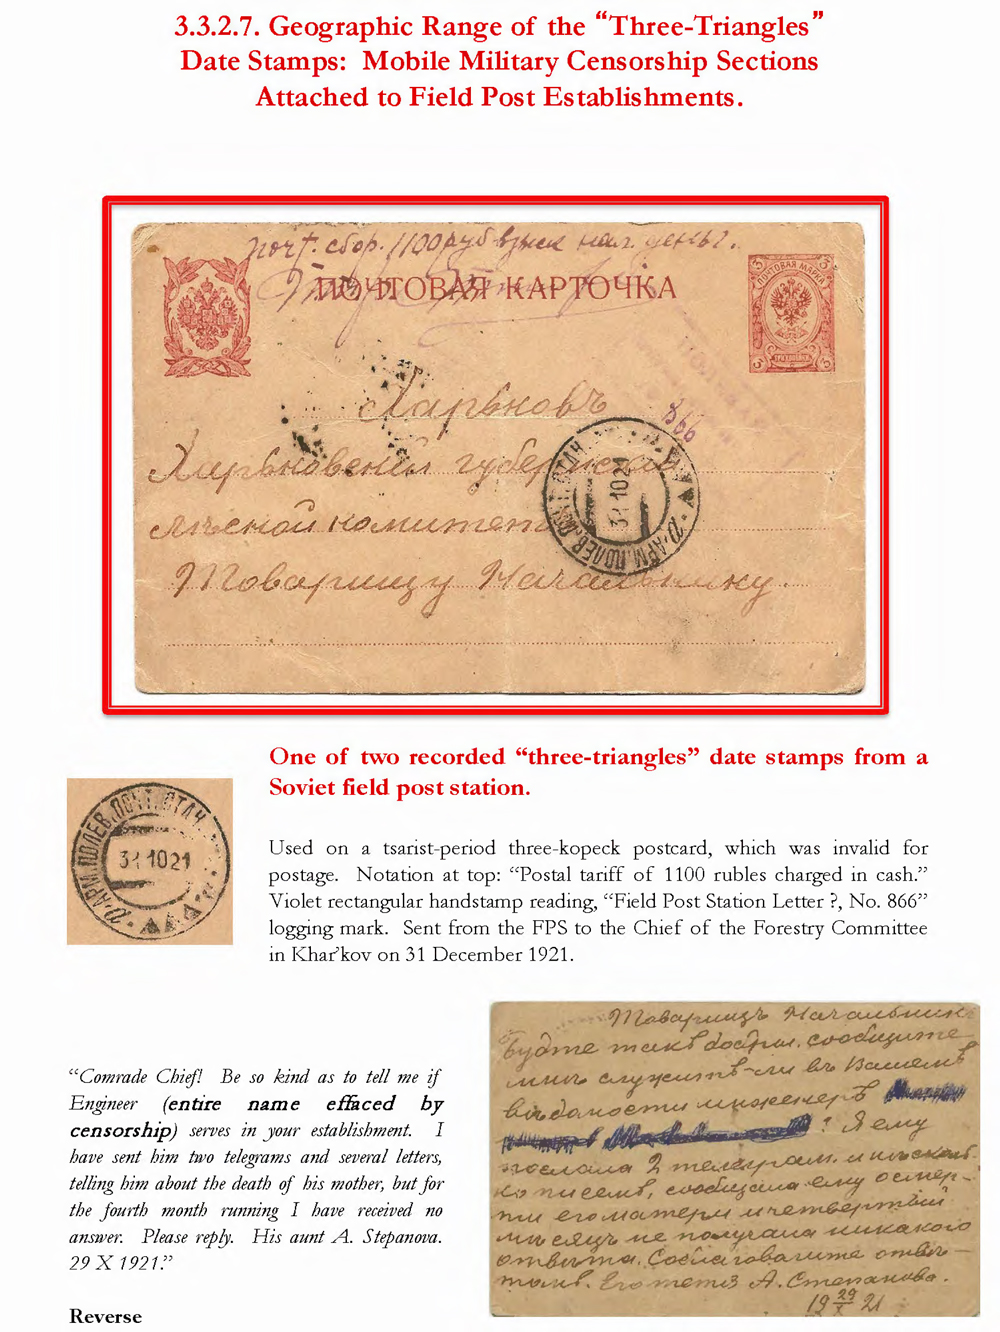 3.3.2.7. Geographic Range of the “Three-Triangles”
Date Stamps: Mobile Military Censorship Sections
Attached to Field Post Establishments.
почт. сбор. 1100 руб взыск нал. деньг.
ПОЧТОВАЯ КАРТОЧКА
ПОЧТОВАЯ МАРКА
3 3
Харьковъ
866
Харьковской губернской
лѣсной комитетъ
Товарищу Начальнику.
АРМ. ПОЛЕВ. ПОЧТ. ОТДЧ
31 10 21
One of two recorded “three-triangles” date stamps from a
Soviet field post station.
АРМ. ПОЛЕВ. ПОЧТ. ОТДЧ
31 10 21
Used on a tsarist-period three-kopeck postcard, which was invalid for
postage. Notation at top: “Postal tariff of 1100 rubles charged in cash.”
Violet rectangular handstamp reading, “Field Post Station Letter ?, No. 866”
logging mark. Sent from the FPS to the Chief of the Forestry Committee
in Khar’kov on 31 December 1921.
“Comrade Chief! Be so kind as to tell me if
Engineer (entire name effaced by
censorship) serves in your establishment. I
have sent him two telegrams and several letters,
telling him about the death of his mother, but for
the fourth month running I have received no
answer. Please reply. His aunt A. Stepanova.
29 X 1921.”
Reverse
Товарищъ Начальникъ
Будте такъ добры, сообщите
мнѣ служитъ-ли въ Вашемъ
вѣдомости инженеръ
? Я ему
послала 2 телеграм. и нѣсколь-
ко писемъ, сообщала ему о смер-
ти его матери и четвертый
мѣсяцъ не получала никакого
отвѣта. Соблаговолите отвѣ-
тить. Его тетя А. Степанова.
19 29/X 21